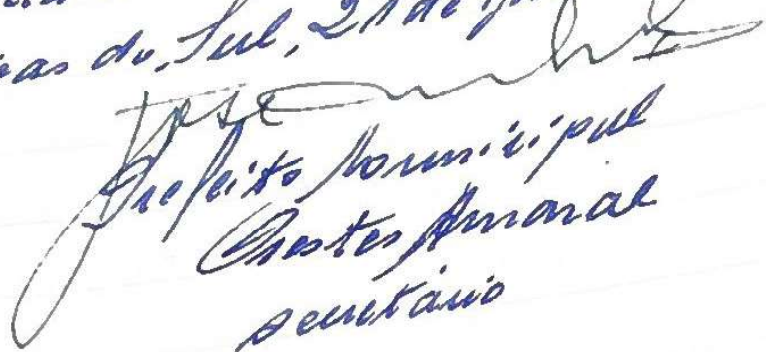 do Sul, 21 de
José
Prefeito Municipal
Orestes Amaral
secretário